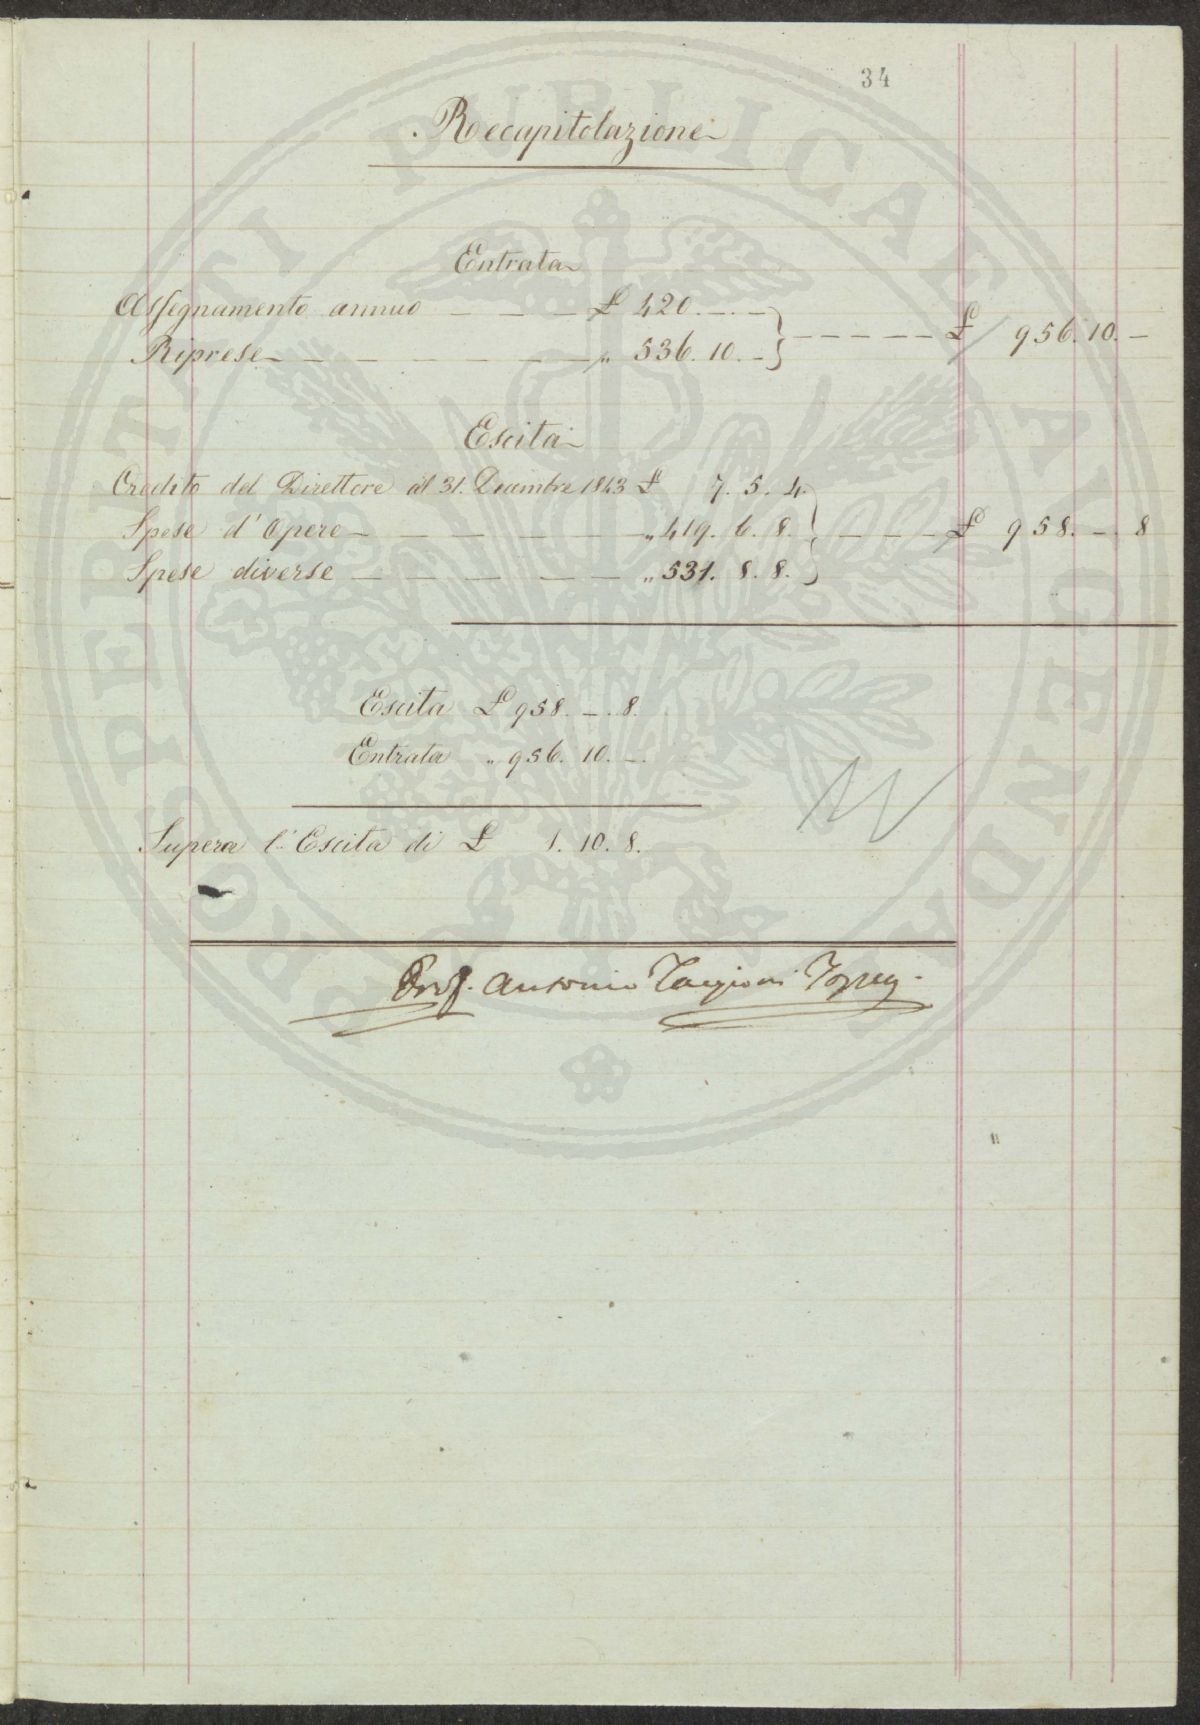 34
Recapitolazione
Entrata
Assegnamento annuo — — — £ 420. —. — } — — — — — £ 956. 10. —
Riprese — — — — — — — „ 536. 10. — }
Escita
Credito del Direttore al 31. Decembre 1843 £ 7. 5. 4.
Spese d'Opere — — — — — „ 419. 6. 8. } — — — £ 958. — 8
Spese diverse — — — — — — „ 531. 8. 8. }
Escita £ 958. —. 8.
Entrata „ 956. 10. —.
Supera l'Escita di £ 1. 10. 8.
Prof. Antonio Targioni Tozzetti
PROSPERITATI PUBLICAE AUGENDAE